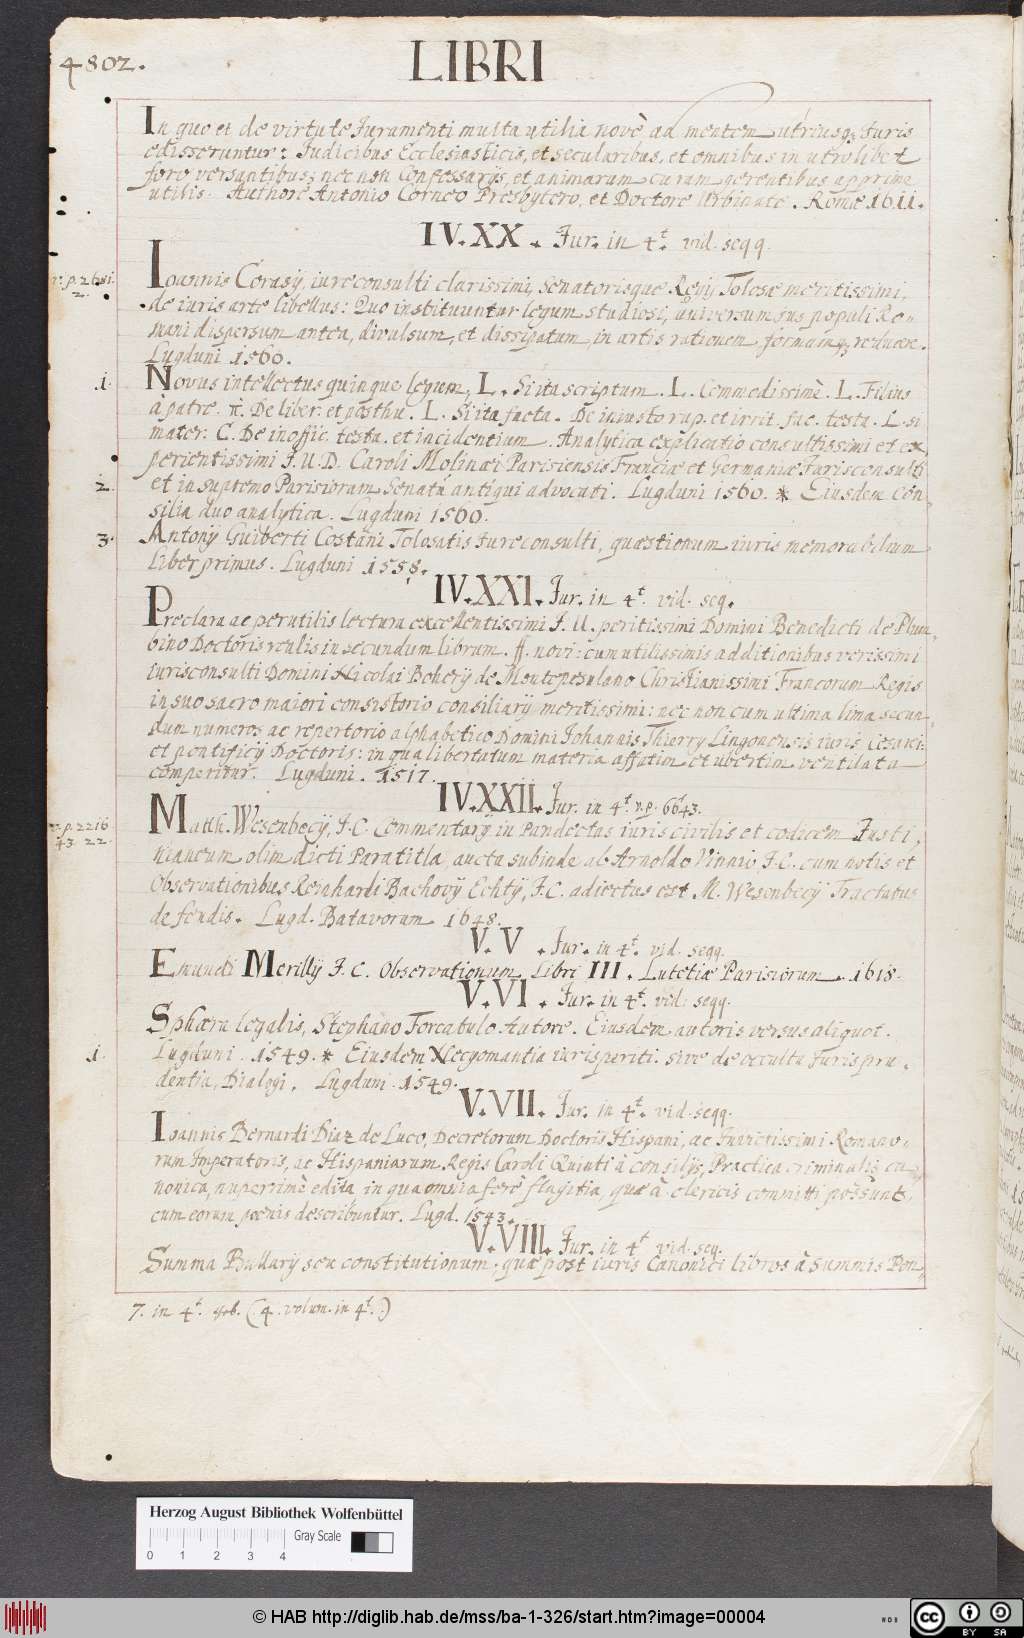 4802.
LIBRI
In quo et de virtute Juramenti multa utilia novè ad mentem utriusq; Juris
edisseruntur: Judicibus Ecclesiasticis, et secularibus, et omnibus in utrolibet
foro versantibus; nec non Confessarys, et animarum curam gerentibus apprime
utilis. Authore Antonio Corneo Presbytero, et Doctore Urbinate. Romæ 1611.
IV.XX. Jur. in 4t. vid. seqq.
v. p. 2681.
2.
Ioannis Corasy, iureconsulti clarissimi, Senatorisque Regij Tolosæ meritissimi,
de iuris arte libellus: Quo instituuntur legum studiosi, universum jus populi Ro-
mani dispersum antea, divulsum, et dissipatum, in artis rationem, formamq; reducere.
Lugduni 1560.
1. Novus intellectus quinque legum, L. Si ita scriptum. L. Commodissimè. L. Filius
à patre. π. De liber. et posthu. L. Si ita facta. De iniusto rup. et irrit. fac. testa. L. si
mater: C. De inoffic. testa. et incidentium. Analytica explicatio consultissimi et ex-
perientissimi J. U. D. Caroli Molinæi Parisiensis Franciæ et Germaniæ Jurisconsulti
2. et in supremo Parisiorum Senatu antiqui advocati. Lugduni 1560. * Eiusdem Con-
silia duo analytica. Lugduni 1560.
3. Antony Guiberti Costani Tolosatis Jureconsulti, quæstionum iuris memorabilium
Liber primus. Lugduni 1558.
IV.XXI. Jur. in 4t. vid. seq.
Preclara ac perutilis lectura excellentissimi J. U. peritissimi Domini Benedicti de Plum-
bino Doctoris realis in secundum librum. ff. novi: cum utilissimis additionibus verissimi
iurisconsulti Domini Nicolai Bohery de Montepesulano Christianissimi Francorum Regis
in suo sacro maiori consistorio consiliary meritissimi: nec non cum ultima lima secun-
dum numeros ac repertorio alphabetico Domini Johannis Thierry Lingonensis iuris cesarei:
et pontificij Doctoris: in qua libertatum materia affatim et ubertim ventilata
comperitur. Lugduni. 1517.
IV.XXII. Jur. in 4t. v. p. 6643.
v. p. 2216
43 22.
Matth. Wesenbecij, J. C. Commentary in Pandectas iuris civilis et codicem Justi-
nianeum olim dicti Paratitla aucta subinde ab Arnoldo Vinnio, J. C. cum notis et
Observationibus Reinhardi Bachovij Echtij, J. C. adiectus est M. Wesenbecij Tractatus
de feudis. Lugd. Batavorum 1648.
V.V. Jur. in 4t. vid. seqq.
Emundi Merillij J. C. Observationum Libri III. Lutetiæ Parisiorum 1618.
V.VI. Jur. in 4t. vid. seqq.
Sphæra legalis, Stephano Forcatulo Autore. Eiusdem autoris versus aliquot.
1. Lugduni. 1549. * Eiusdem Necyomantia iurisperiti. sive de occulta Jurispru-
dentia, Dialogi. Lugduni. 1549.
V.VII. Jur. in 4t. vid. seqq.
Ioannis Bernardi Diaz de Luco, Decretorum Doctoris Hispani, ac Invictissimi Romano-
rum Imperatoris, ac Hispaniarum Regis Caroli Quinti à consilijs, Practica criminalis ca-
nonica, nuperrimè edita, in qua omnia ferè flagitia, quæ à clericis committi possunt,
cum eorum pœnis describuntur. Lugd. 1543.
V.VIII. Jur. in 4t vid. seq.
Summa Bullarij seu constitutionum. quæ post iuris Canonici libros à summis Pon-
7. in 4t. (4. volum. in 4t.)
Herzog August Bibliothek Wolfenbüttel
Gray Scale
0 1 2 3 4
© HAB http://diglib.hab.de/mss/ba-1-326/start.htm?image=00004
cc BY SA